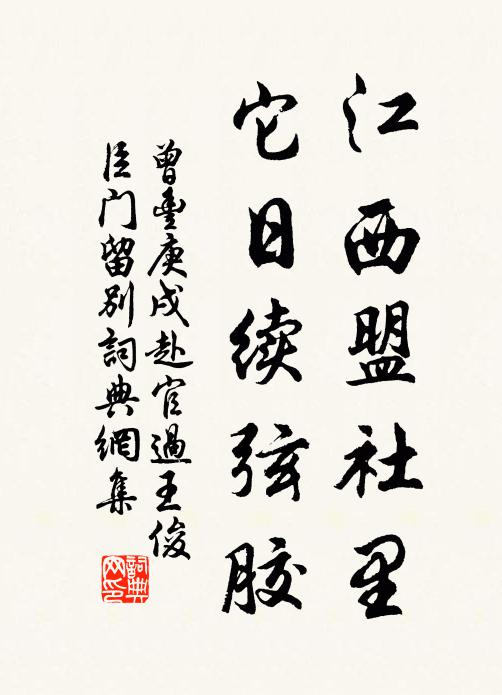 江西盟社里
它日续弦胶
曾豐庚戌赴官過王俊
臣门留别詞典網集
詞典
网印